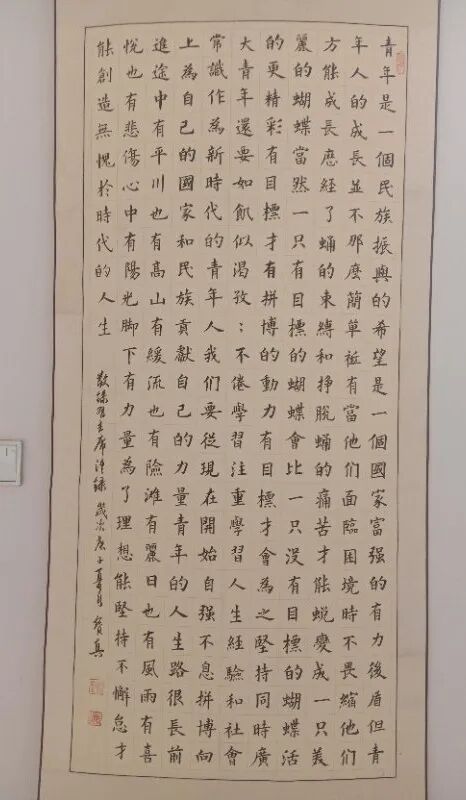 青年是一個民族振興的希望是一個國家富强的有力後盾但青
年人的成長並不那麼簡單祗有當他們面臨困境時不畏縮他們
方能成長歷經了蛹的束縛和掙脱蛹的痛苦才能蜕變成一只美
麗的蝴蝶當然一只有目標的蝴蝶會比一只沒有目標的蝴蝶活
的更精彩有目標才有拼博的動力有目標才會為之堅持同時廣
大青年還要如飢似渴孜：不倦學習注重學習人生經驗和社會
常識作為新時代的青年人我們要從現在開始自强不息拼博向
上為自己的國家和民族貢獻自己的力量青年的人生路很長前
進途中有平川也有高山有緩流也有險滩有麗日也有風雨有喜
悅也有悲傷心中有陽光脚下有力量為了理想能堅持不懈怠才
能創造無愧於時代的人生
敬録習主席語録 歲次庚子夏月